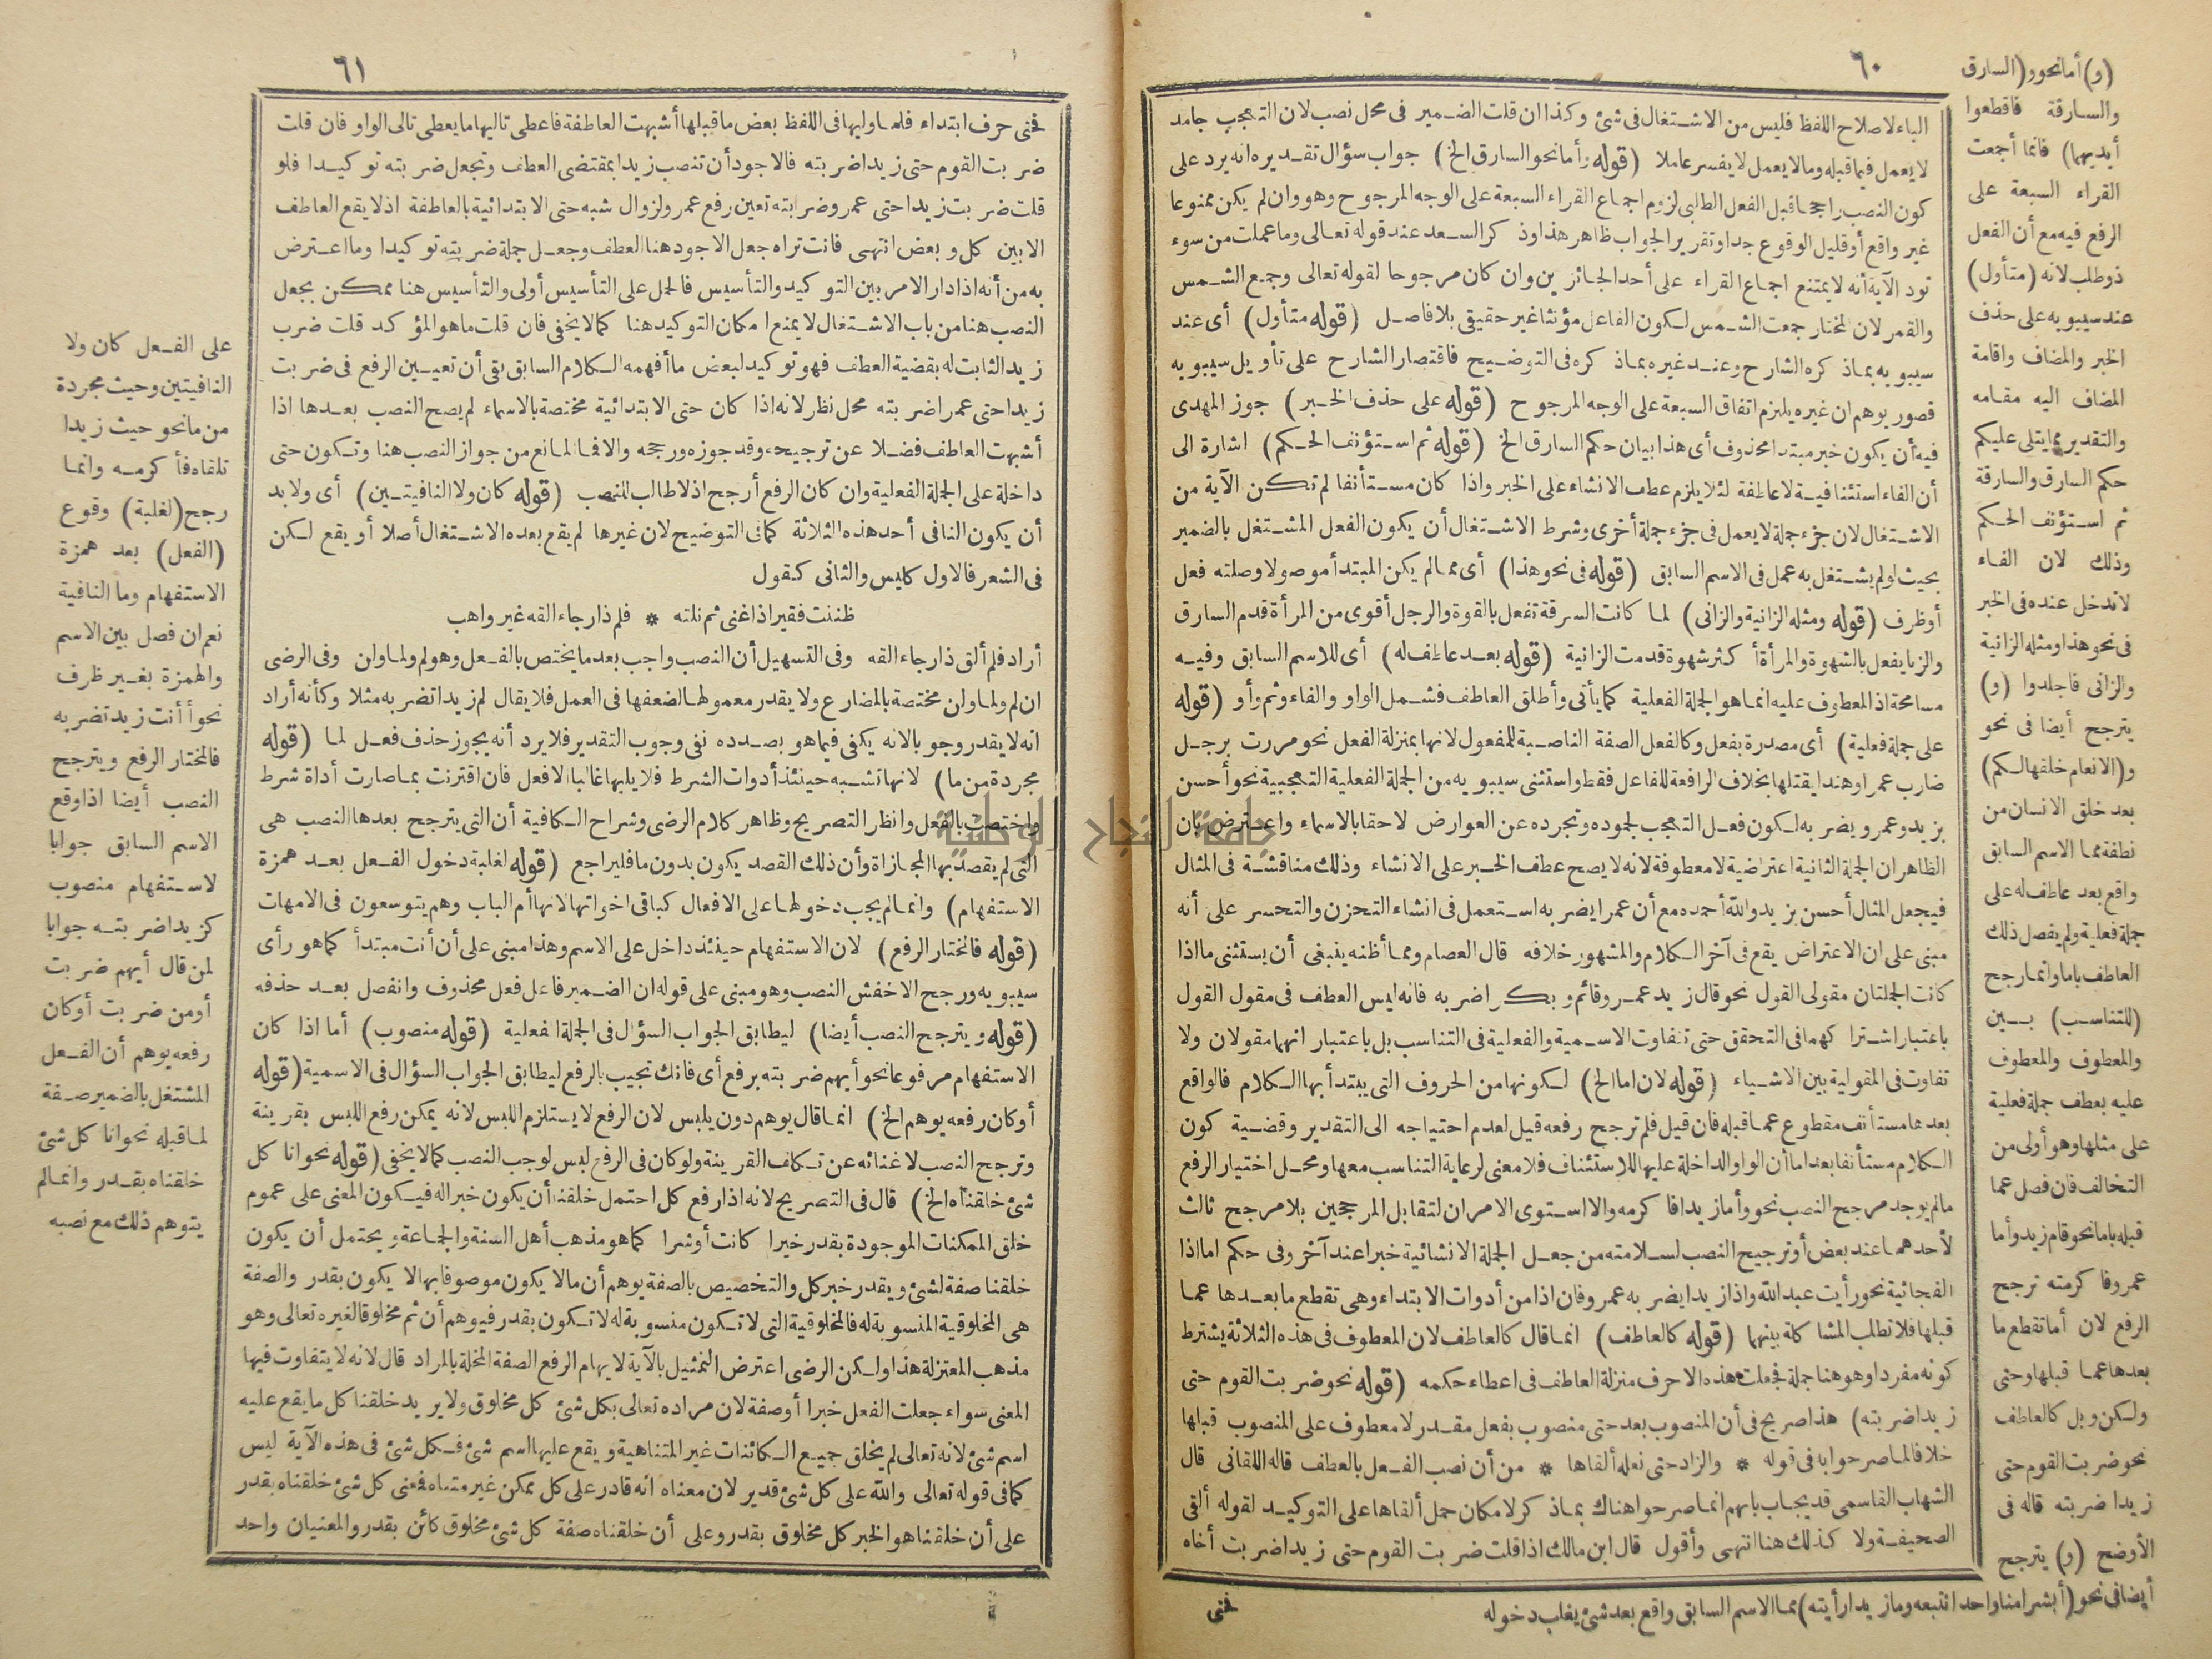 ٦٠
الباء لاصلاح اللفظ فليس من الاشتغال فى شئ وكذا ان قلت الضمير فى محل نصب لان التعجب جامد
لا يعمل فيما قبله وما لا يعمل لا يفسر عاملا (قوله وأما نحو السارق الخ) جواب سؤال تقديره انه يرد على
كون النصب راجحا قبل الفعل الطلبى لزوم اجماع القراء السبعة على الوجه المرجوح وهو وان لم يكن ممنوعا
غير واقع أو قليل الوقوع جدا وتقرير الجواب ظاهر هذا وذكر السعد عند قوله تعالى وما عملت من سوء
تود الآية أنه لا يمتنع اجماع القراء على أحد الجائزين وان كان مرجوحا لقوله تعالى وجمع الشمس
والقمر لان المختار جمعت الشمس لكون الفاعل مؤنثا غير حقيقى بلا فاصل (قوله متأول) أى عند
سيبويه بماذكره الشارح وعند غيره بماذكره فى التوضيح فاقتصار الشارح على تأويل سيبويه
قصور يوهم ان غيره يلتزم اتفاق السبعة على الوجه المرجوح (قوله على حذف الخبر) جوز المهدى
فيه أن يكون خبر مبتدا محذوف أى هذا بيان حكم السارق الخ (قوله ثم استؤنف الحكم) اشارة الى
أن الفاء استئنافية لا عاطفة لئلا يلزم عطف الانشاء على الخبر واذا كان مستأنفا لم تكن الآية من
الاشتغال لان جزء جملة لا يعمل فى جزء جملة أخرى وشرط الاشتغال أن يكون الفعل المشتغل بالضمير
بحيث لو لم يشتغل به عمل فى الاسم السابق (قوله فى نحو هذا) أى مما لم يكن المبتدأ موصولا وصلته فعل
أو ظرف (قوله ومثله الزانية والزانى) لما كانت السرقة تفعل بالقوة والرجل أقوى من المرأة قدم السارق
والزنا يفعل بالشهوة والمرأة أكثر شهوة قدمت الزانية (قوله بعد عاطف له) أى للاسم السابق وفيه
مسامحة اذ المعطوف عليه انما هو الجملة الفعلية كما يأتى وأطلق العاطف فشمل الواو والفاء وثم وأو (قوله
على جملة فعلية) أى مصدرة بفعل وكالفعل الصفة الناصبة للمفعول لانها بمنزلة الفعل نحو مررت برجل
ضارب عمرا وهندا يقتلها بخلاف الرافعة للفاعل فقط واستثنى سيبويه من الجملة الفعلية التعجبية نحو أحسن
بزيد وعمرو يضربه لكون فعل التعجب لجموده وتجرده عن العوارض لاحقا بالاسماء واعترض بان
الظاهر ان الجملة الثانية اعتراضية لا معطوفة لانه لا يصح عطف الخبر على الانشاء وذلك مناقشة فى المثال
فيجعل المثال أحسن بزيد والله أحمده مع أن عمرا يضربه استعمل فى انشاء التحزن والتحسر على أنه
مبنى على ان الاعتراض يقع فى آخر الكلام والمشهور خلافه قال العصام ومما أظنه ينبغى أن يستثنى ما اذا
كانت الجملتان مقولى القول نحو قال زيد عمرو قائم وبكرا اضربه فانه ليس العطف فى مقول القول
باعتبار اشتراكهما فى التحقق حتى تتفاوت الاسمية والفعلية فى التناسب بل باعتبار انهما مقولان ولا
تفاوت فى المقولية بين الاشياء (قوله لان اما الخ) لكونها من الحروف التى يبتدأ بها الكلام فالواقع
بعدها مستأنف مقطوع عما قبله فان قيل فلم ترجح رفعه قيل لعدم احتياجه الى التقدير وقضية كون
الكلام مستأنفا بعد اما أن الواو الداخلة عليها للاستئناف فلا معنى لرعاية التناسب معها ومحل اختيار الرفع
مالم يوجد مرجح النصب نحو وأما زيدا فاكرمه والا استوى الامران لتقابل المرجحين بلا مرجح ثالث
لأحدهما عند بعض أو ترجيح النصب لسلامته من جعل الجملة الانشائية خبرا عند آخر وفى حكم اما اذا
الفجائية نحو رأيت عبد الله واذا زيدا يضربه عمرو فان اذا من أدوات الابتداء وهى تقطع ما بعدها عما
قبلها فلا تطلب المشاكلة بينهما (قوله كالعاطف) انما قال كالعاطف لان المعطوف فى هذه الثلاثة يشترط
كونه مفردا وهو هنا جملة فجعلت هذه الاحرف منزلة العاطف فى اعطاء حكمه (قوله نحو ضربت القوم حتى
زيدا ضربته) هذا صريح فى أن المنصوب بعد حتى منصوب بفعل مقدر لا معطوف على المنصوب قبلها
خلافا لما صرحوا به فى قوله * والزاد حتى نعله ألقاها * من أن نصب الفعل بالعطف قاله اللقانى قال
الشهاب القاسمى قد يجاب بانهم انما صرحوا هناك بماذكر لامكان حمل ألقاها على التوكيد لقوله ألقى
الصحيفة ولا كذلك هنا انتهى وأقول قال ابن مالك اذا قلت ضربت القوم حتى زيدا ضربت أخاه
فحتى
(و) أما نحو و(السارق
والسارقة فاقطعوا
أيديهما) فانما أجمعت
القراء السبعة على
الرفع فيه مع أن الفعل
ذو طلب لانه (متأول)
عند سيبويه على حذف
الخبر والمضاف واقامة
المضاف اليه مقامه
والتقدير مما يتلى عليكم
حكم السارق والسارقة
ثم استؤنف الحكم
وذلك لان الفاء
لا تدخل عنده فى الخبر
فى نحو هذا ومثله الزانية
والزانى فاجلدوا (و)
يترجح أيضا فى نحو
و(الانعام خلقها لكم)
بعد خلق الانسان من
نطفة مما الاسم السابق
واقع بعد عاطف له على
جملة فعلية ولم يفصل ذلك
العاطف باما وانما رجح
(للتناسب) بين
والمعطوف والمعطوف
عليه بعطف جملة فعلية
على مثلها وهو أولى من
التخالف فان فصل عما
قبله باما نحو قام زيد وأما
عمرو فاكرمته ترجح
الرفع لان أما تقطع ما
بعدها عما قبلها وحتى
ولكن وبل كالعاطف
نحو ضربت القوم حتى
زيدا ضربته قاله فى
الأوضح (و) يترجح
أيضا فى نحو (أبشرا منا واحدا نتبعه وما زيدا رأيته) مما الاسم السابق واقع بعد شئ يغلب دخوله
٦١
فحتى حرف ابتداء فلما وليها فى اللفظ بعض ما قبلها أشبهت العاطفة فاعطى تاليها ما يعطى تالى الواو فان قلت
ضربت القوم حتى زيدا ضربته فالاجود أن تنصب زيدا بمقتضى العطف وتجعل ضربته توكيدا فلو
قلت ضربت زيدا حتى عمرو ضربته تعين رفع عمرو لزوال شبه حتى الابتدائية بالعاطفة اذ لا يقع العاطف
الا بين كل وبعض انتهى فانت تراه جعل الاجود هنا العطف وجعل جملة ضربته توكيدا وما اعترض
به من أنه اذا دار الامر بين التوكيد والتأسيس فالحمل على التأسيس أولى والتأسيس هنا ممكن بجعل
النصب هنا من باب الاشتغال لا يمنع امكان التوكيد هنا كما لا يخفى فان قلت ما هو المؤكد قلت ضرب
زيد الثابت له بقضية العطف فهو توكيد لبعض ما أفهمه الكلام السابق بقى أن تعيين الرفع فى ضربت
زيدا حتى عمرا ضربته محل نظر لانه اذا كان حتى الابتدائية مختصة بالاسماء لم يصح النصب بعدها اذا
أشبهت العاطف فضلا عن ترجيحه وقد جوزه ورجحه والا فما المانع من جواز النصب هنا وتكون حتى
داخلة على الجملة الفعلية وان كان الرفع أرجح اذ لا طالب للنصب (قوله كان ولا النافيتين) أى ولا بد
أن يكون النافى أحد هذه الثلاثة كما فى التوضيح لان غيرها لم يقع بعده الاشتغال أصلا أو يقع لكن
فى الشعر فالاول كليس والثانى كقول
ظننت فقيرا ذا غنى ثم نلته * فلم ذا رجاء القه غير واهب
أراد فلم ألق ذا رجاء القه وفى التسهيل أن النصب واجب بعد ما يختص بالفعل وهو لم ولما ولن وفى الرضى
ان لم ولما ولن مختصة بالمضارع ولا يقدر معمولها لضعفها فى العمل فلا يقال لم زيدا تضربه مثلا وكأنه أراد
انه لا يقدر وجوبا لانه يكفى فيما هو بصدده نفى وجوب التقدير فلا يرد أنه يجوز حذف فعل لما (قوله
مجردة من ما) لانها تشبه حينئذ أدوات الشرط فلا يليها غالبا الا فعل فان اقترنت بما صارت أداة شرط
واختصت بالفعل وانظر التصريح وظاهر كلام الرضى وشراح الكافية أن التى يترجح بعدها النصب هى
التى لم يقصد بها المجازاة وأن ذلك القصد يكون بدون ما فليراجع (قوله لغلبة دخول الفعل بعد همزة
الاستفهام) وانما لم يجب دخولها على الافعال كباقى اخواتها لانها أم الباب وهم يتوسعون فى الامهات
(قوله فالمختار الرفع) لان الاستفهام حينئذ داخل على الاسم وهذا مبنى على أن أنت مبتدأ كما هو رأى
سيبويه ورجح الاخفش النصب وهو مبنى على قوله ان الضمير فاعل فعل محذوف وانفصل بعد حذفه
(قوله ويترجح النصب أيضا) ليطابق الجواب السؤال فى الجملة الفعلية (قوله منصوب) أما اذا كان
الاستفهام مرفوعا نحو أيهم ضربته برفع أى فانك تجيب بالرفع ليطابق الجواب السؤال فى الاسمية (قوله
أو كان رفعه يوهم الخ) انما قال يوهم دون يلبس لان الرفع لا يستلزم اللبس لانه يمكن رفع اللبس بقرينة
وترجح النصب لاغنائه عن تكلف القرينة ولو كان فى الرفع لبس لوجب النصب كما لا يخفى (قوله نحو انا كل
شئ خلقناه الخ) قال فى التصريح لانه اذا رفع كل احتمل خلقنا أن يكون خبرا له فيكون المعنى على عموم
خلق الممكنات الموجودة بقدر خيرا كانت أو شرا كما هو مذهب أهل السنة والجماعة ويحتمل أن يكون
خلقنا صفة لشئ وبقدر خبر كل والتخصيص بالصفة يوهم أن ما لا يكون موصوفا بها لا يكون بقدر والصفة
هى المخلوقية المنسوبة له فالمخلوقية التى لا تكون منسوبة له لا تكون بقدر فيوهم أن ثم مخلوقا لغيره تعالى وهو
مذهب المعتزلة هذا ولكن الرضى اعترض التمثيل بالآية لايهام الرفع الصفة المخلة بالمراد قال لانه لا يتفاوت فيها
المعنى سواء جعلت الفعل خبرا أو صفة لان مراده تعالى بكل شئ كل مخلوق ولا يريد خلقنا كل ما يقع عليه
اسم شئ لانه تعالى لم يخلق جميع الكائنات غير المتناهية ويقع عليها اسم شئ فكل شئ فى هذه الآية ليس
كما فى قوله تعالى والله على كل شئ قدير لان معناه انه قادر على كل ممكن غير متناه فمعنى كل شئ خلقناه بقدر
على أن خلقنا هو الخبر كل مخلوق بقدر وعلى أن خلقناه صفة كل شئ مخلوق كائن بقدر والمعنيان واحد
على الفعل كان ولا
النافيتين وحيث مجردة
من ما نحو حيث زيدا
تلقاه فأكرمه وانما
رجح (لغلبة) وقوع
(الفعل) بعد همزة
الاستفهام وما النافية
نعم ان فصل بين الاسم
والهمزة بغير ظرف
نحو أأنت زيد تضربه
فالمختار الرفع ويترجح
النصب أيضا اذا وقع
الاسم السابق جوابا
لاستفهام منصوب
كزيدا ضربته جوابا
لمن قال أيهم ضربت
أو من ضربت أو كان
رفعه يوهم أن الفعل
المشتغل بالضمير صفة
لما قبله نحو انا كل شئ
خلقناه بقدر وانما لم
يتوهم ذلك مع نصبه
جامعة النجاح الوطنية